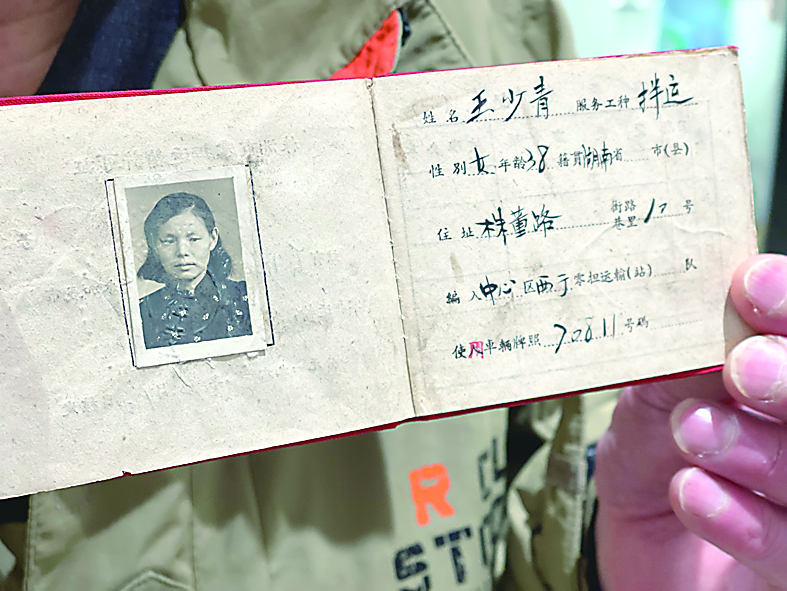 姓名 王少青 服务工种 拌运
性别 女 年龄 38 籍贯 湖南省 市(县)
住址 株董路 街路巷里 17 号
编入 中心 区 西丁 零担运输(站) 队
使用车辆牌照 70811 号码
R
CL
ST